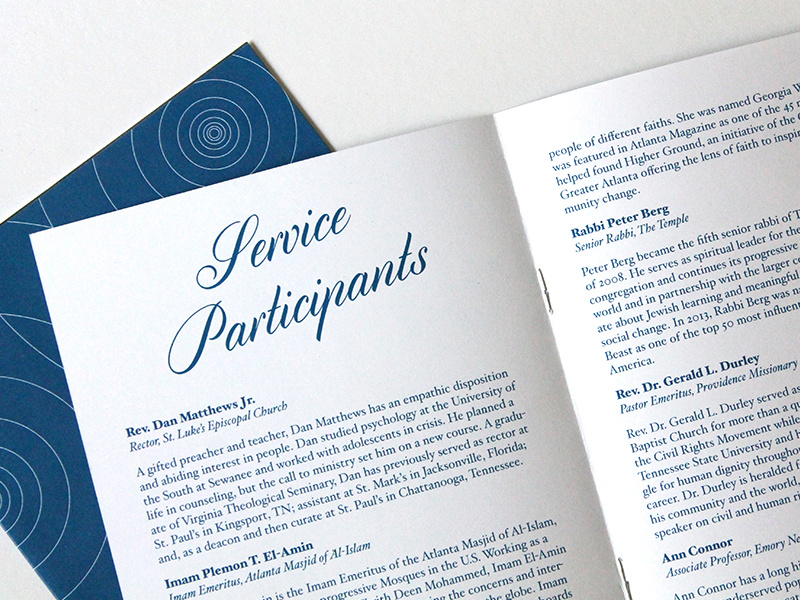 Service
Participants
Rev. Dan Matthews Jr.
Rector, St. Luke's Episcopal Church
A gifted preacher and teacher, Dan Matthews has an empathic disposition
and abiding interest in people. Dan studied psychology at the University of
the South at Sewanee and worked with adolescents in crisis. He planned a
life in counseling, but the call to ministry set him on a new course. A gradu-
ate of Virginia Theological Seminary, Dan has previously served as rector at
St. Paul's in Kingsport, TN; assistant at St. Mark's in Jacksonville, Florida;
and, as a deacon and then curate at St. Paul's in Chattanooga, Tennessee.
Imam Plemon T. El-Amin
Imam Emeritus, Atlanta Masjid of Al-Islam
in is the Imam Emeritus of the Atlanta Masjid of Al-Islam,
progressive Mosques in the U.S. Working as
with Deen Mohammed, Imam El-Amin
ing the concerns and inter-
the globe. Imam
boards
people of different faiths. She was named Georgia W
was featured in Atlanta Magazine as one of the 45
helped found Higher Ground, an initiative of the
Greater Atlanta offering the lens of faith to inspi
munity change.
Rabbi Peter Berg
Senior Rabbi, The Temple
Peter Berg became the fifth senior rabbi of T
of 2008. He serves as spiritual leader for the
congregation and continues its progressive
world and in partnership with the larger co
ate about Jewish learning and meaningful
social change. In 2013, Rabbi Berg was n
Beast as one of the top 50 most influent
America.
Rev. Dr. Gerald L. Durley
Pastor Emeritus, Providence Missionary
Rev. Dr. Gerald L. Durley served as
Baptist Church for more than a qu
the Civil Rights Movement while
Tennessee State University and h
gle for human dignity throughou
career. Dr. Durley is heralded f
his community and the world,
speaker on civil and human ri
Ann Connor
Associate Professor, Emory Ne
Ann Connor has a long hi
underserved po